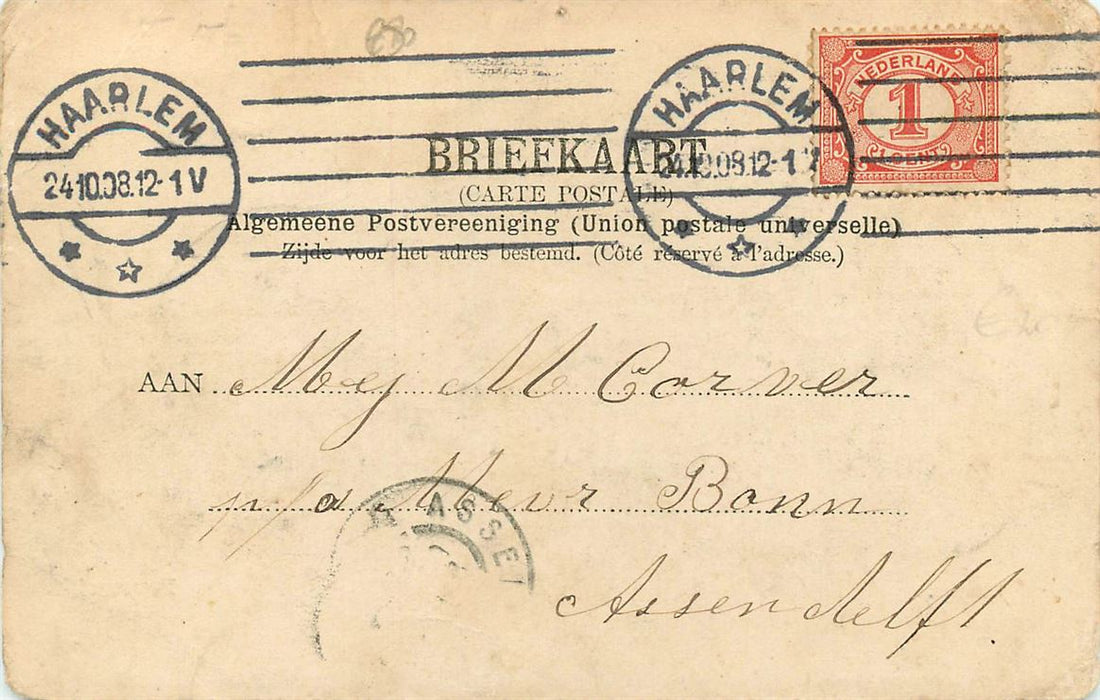 HAARLEM
24.10.08.12-1V
HAARLEM
24.10.08.12-1V
NEDERLAND
1
1 CENT
BRIEFKAART
(CARTE POSTALE)
Algemeene Postvereeniging (Union postale universelle)
Zijde voor het adres bestemd. (Côté réservé à l'adresse.)
AAN Mej M Corver
p/a Mevr Bonn
ASSE
Assendelft.